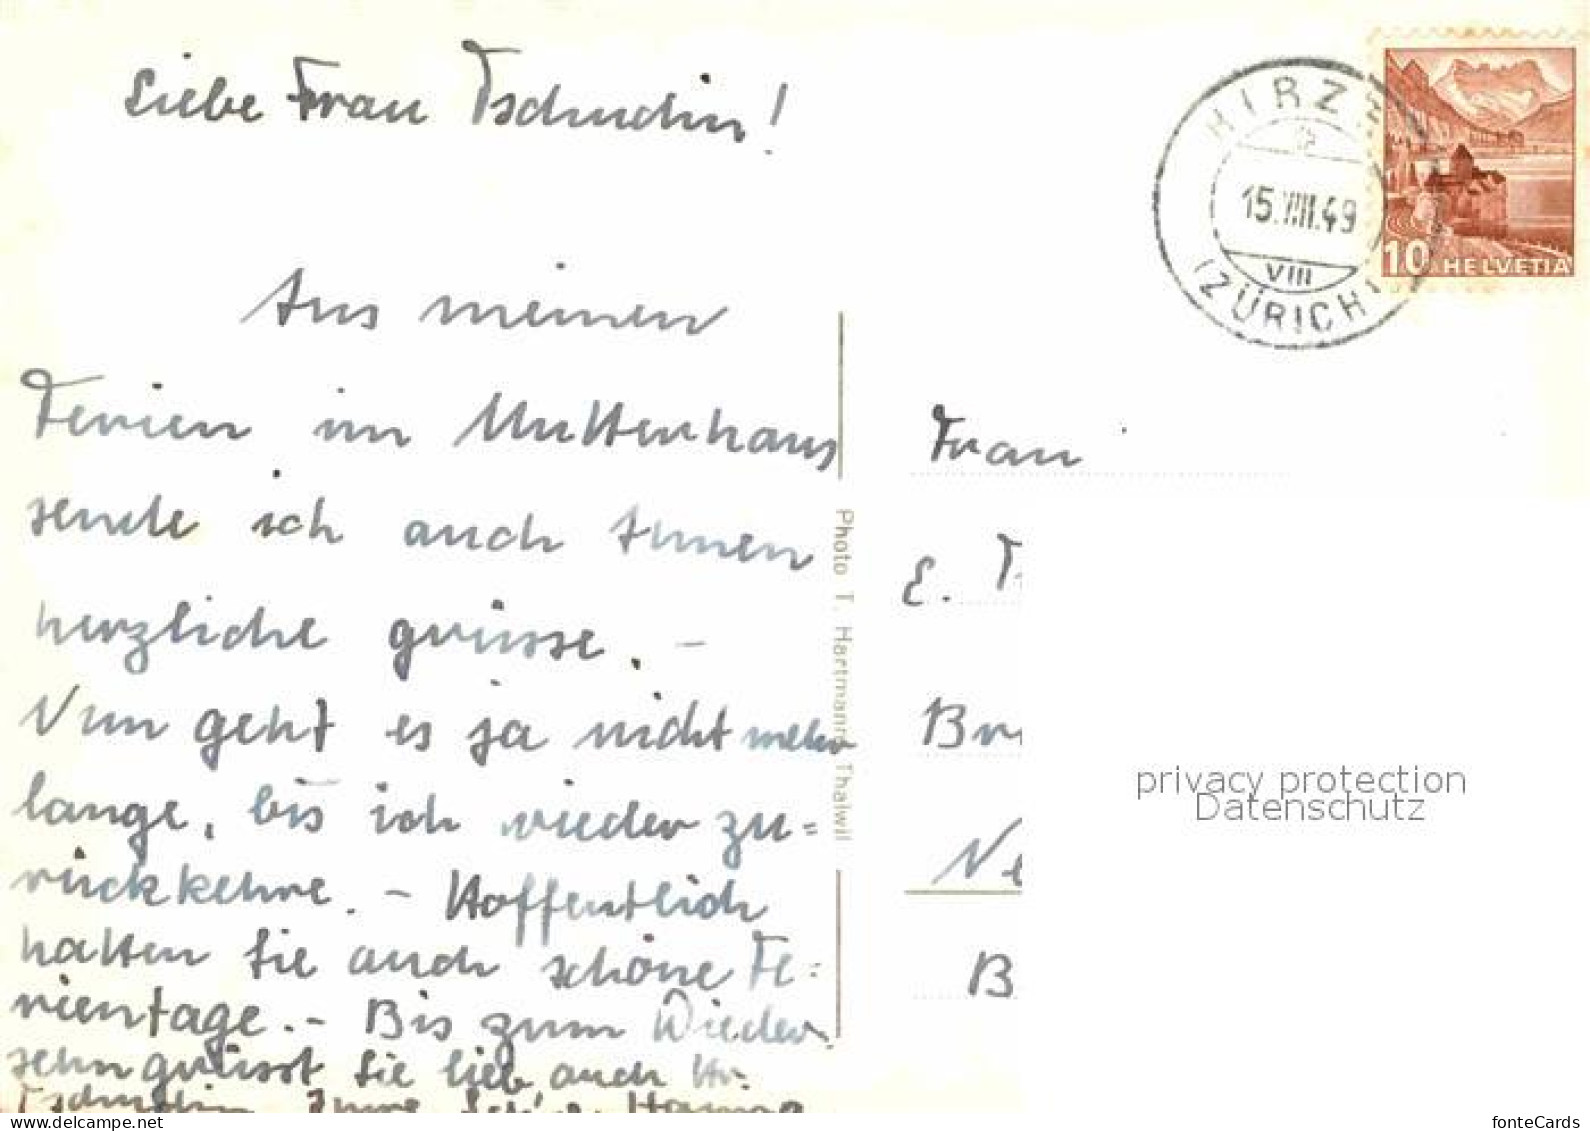 Liebe Frau Tschudin!
Aus meinen
Ferien im Mutterhaus
sende ich auch Ihnen
herzliche grüsse. –
Nun geht es ja nicht mehr
lange, bis ich wieder zu=
rückkehre. – Hoffentlich
hatten Sie auch schöne Fe=
rientage. – Bis zum Wieder
sehn grüsst Sie lieb, auch Hr.
Tschudin, Ihre
Photo T. Hartmann, Thalwil
HIRZEL
15.VIII.49
VIII
(ZÜRICH)
10 HELVETIA
Frau
E. T
Br
Ne
B
privacy protection
Datenschutz
www.delcampe.net
fonteCards